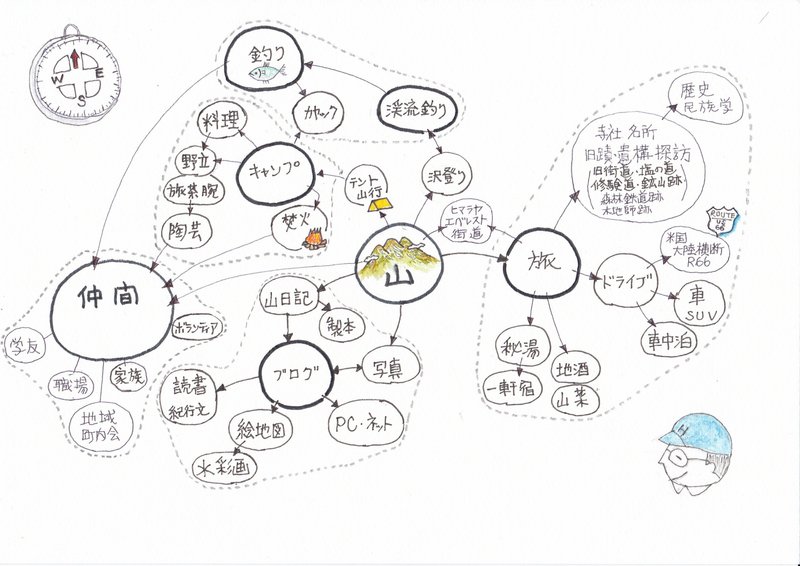 W
E
S
釣り
カヤック
渓流釣り
料理
野立
旅茶腕
陶芸
キャンプ
焚火
テント
山行
沢登り
ヒマラヤ
エベレスト
街道
山
旅
歴史
民族学
寺社 名所
旧蹟・遺構・探訪
(旧街道・塩の道
修験道・鉱山跡)
森林鉄道跡
木地師跡
ROUTE
US
66
米国
大陸横断
R66
ドライブ
車
SUV
車中泊
秘湯
一軒宿
地酒
山菜
仲間
ボランティア
学友
職場
家族
地域
町内会
山日記
製本
ブログ
写真
読書
紀行文
絵地図
水彩画
PC・ネット
H